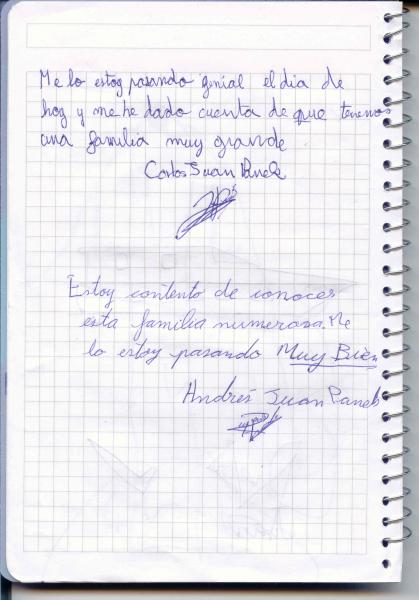 Me lo estoy pasando genial el dia de
hoy y me he dado cuenta de que tenemos
una familia muy grande
Carlos Juan Panek
Estoy contento de conoces
esta familia numerosa. Me
lo estoy pasando Muy Bièn
Andrés Juan Panek